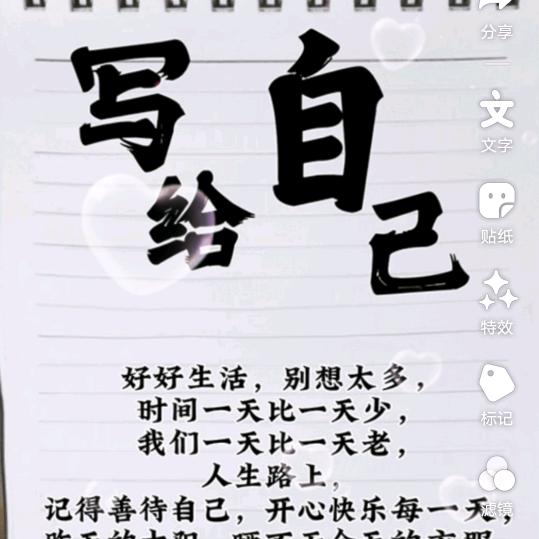 写给自己
好好生活，别想太多，
时间一天比一天少，
我们一天比一天老，
人生路上，
记得善待自己，开心快乐每一天，
分享
文字
贴纸
特效
标记
滤镜